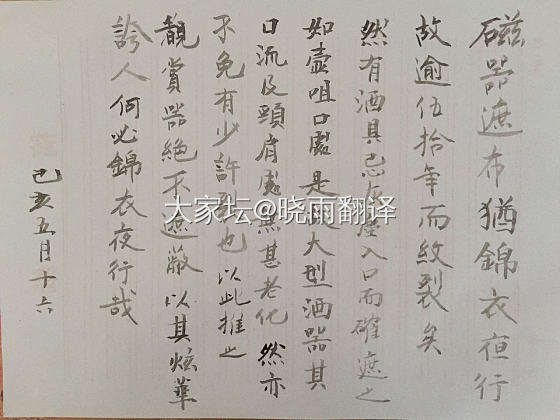 磁器遮布猶錦衣夜行
故逾伍拾年而紋裂矣
然有酒具忌灰塵入口而確遮之
如壺咀口處是故大型酒器其
口流及頸肩處無甚老化然亦
不免有少許也以此推之
觀賞器絕不遮蔽以其炫華
誇人何必錦衣夜行哉
己亥五月十六
大家坛@晓雨翻译